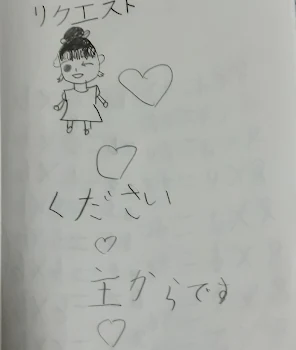 リクエスト
ください
主からです